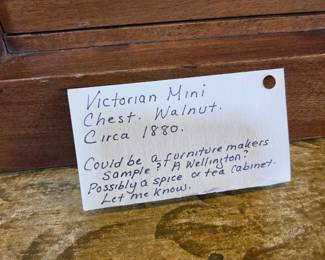 Victorian Mini
Chest. Walnut.
Circa 1880.
Could be a furniture makers
Sample? A Wellington?
Possibly a spice or tea cabinet.
Let me know.